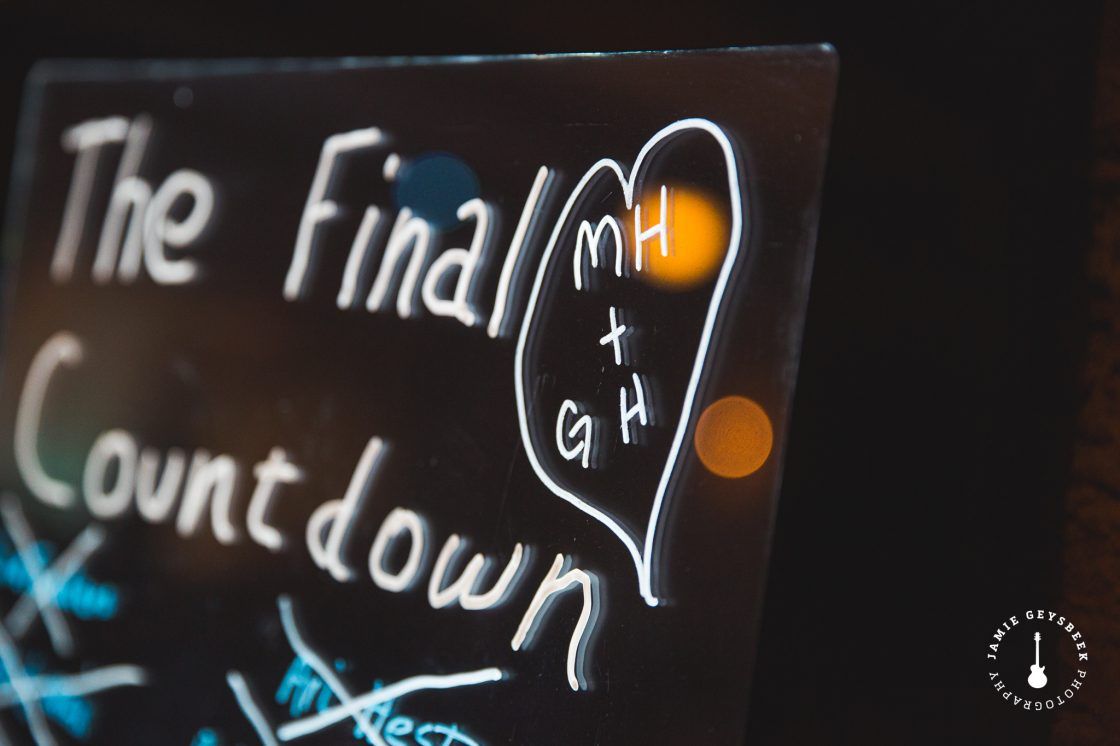 The Final
Countdown
MH
+
GH
JAMIE GEYSBEEK PHOTOGRAPHY